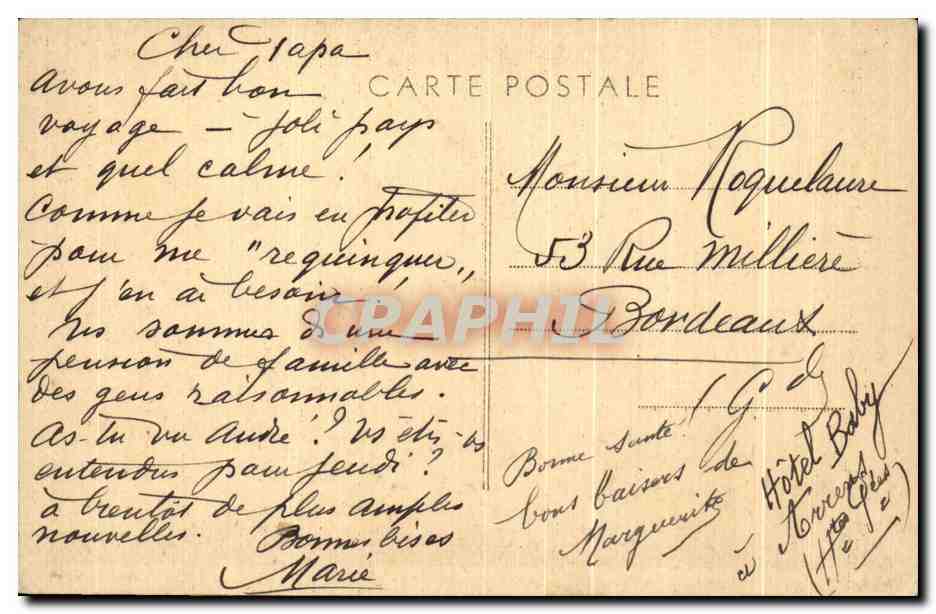 Cher Papa
avons fait bon
voyage — joli pays
et quel calme !
Comme je vais en profiter
pour me "requinquer"
et j'en ai besoin !
Ns sommes ds une
pension de famille avec
des gens raisonnables.
As-tu vu André ? Vs êtes-vs
entendus pour jeudi ?
à bientôt de plus amples
nouvelles. Bonnes bises
Marie
CARTE POSTALE
Monsieur Roquelaure
53 Rue Millière
Bordeaux
(Gde)
Bonne santé !
bons baisers de
Marguerite
Hôtel Baby
à Arrens
(Htes Pyées)
CRAPHIL